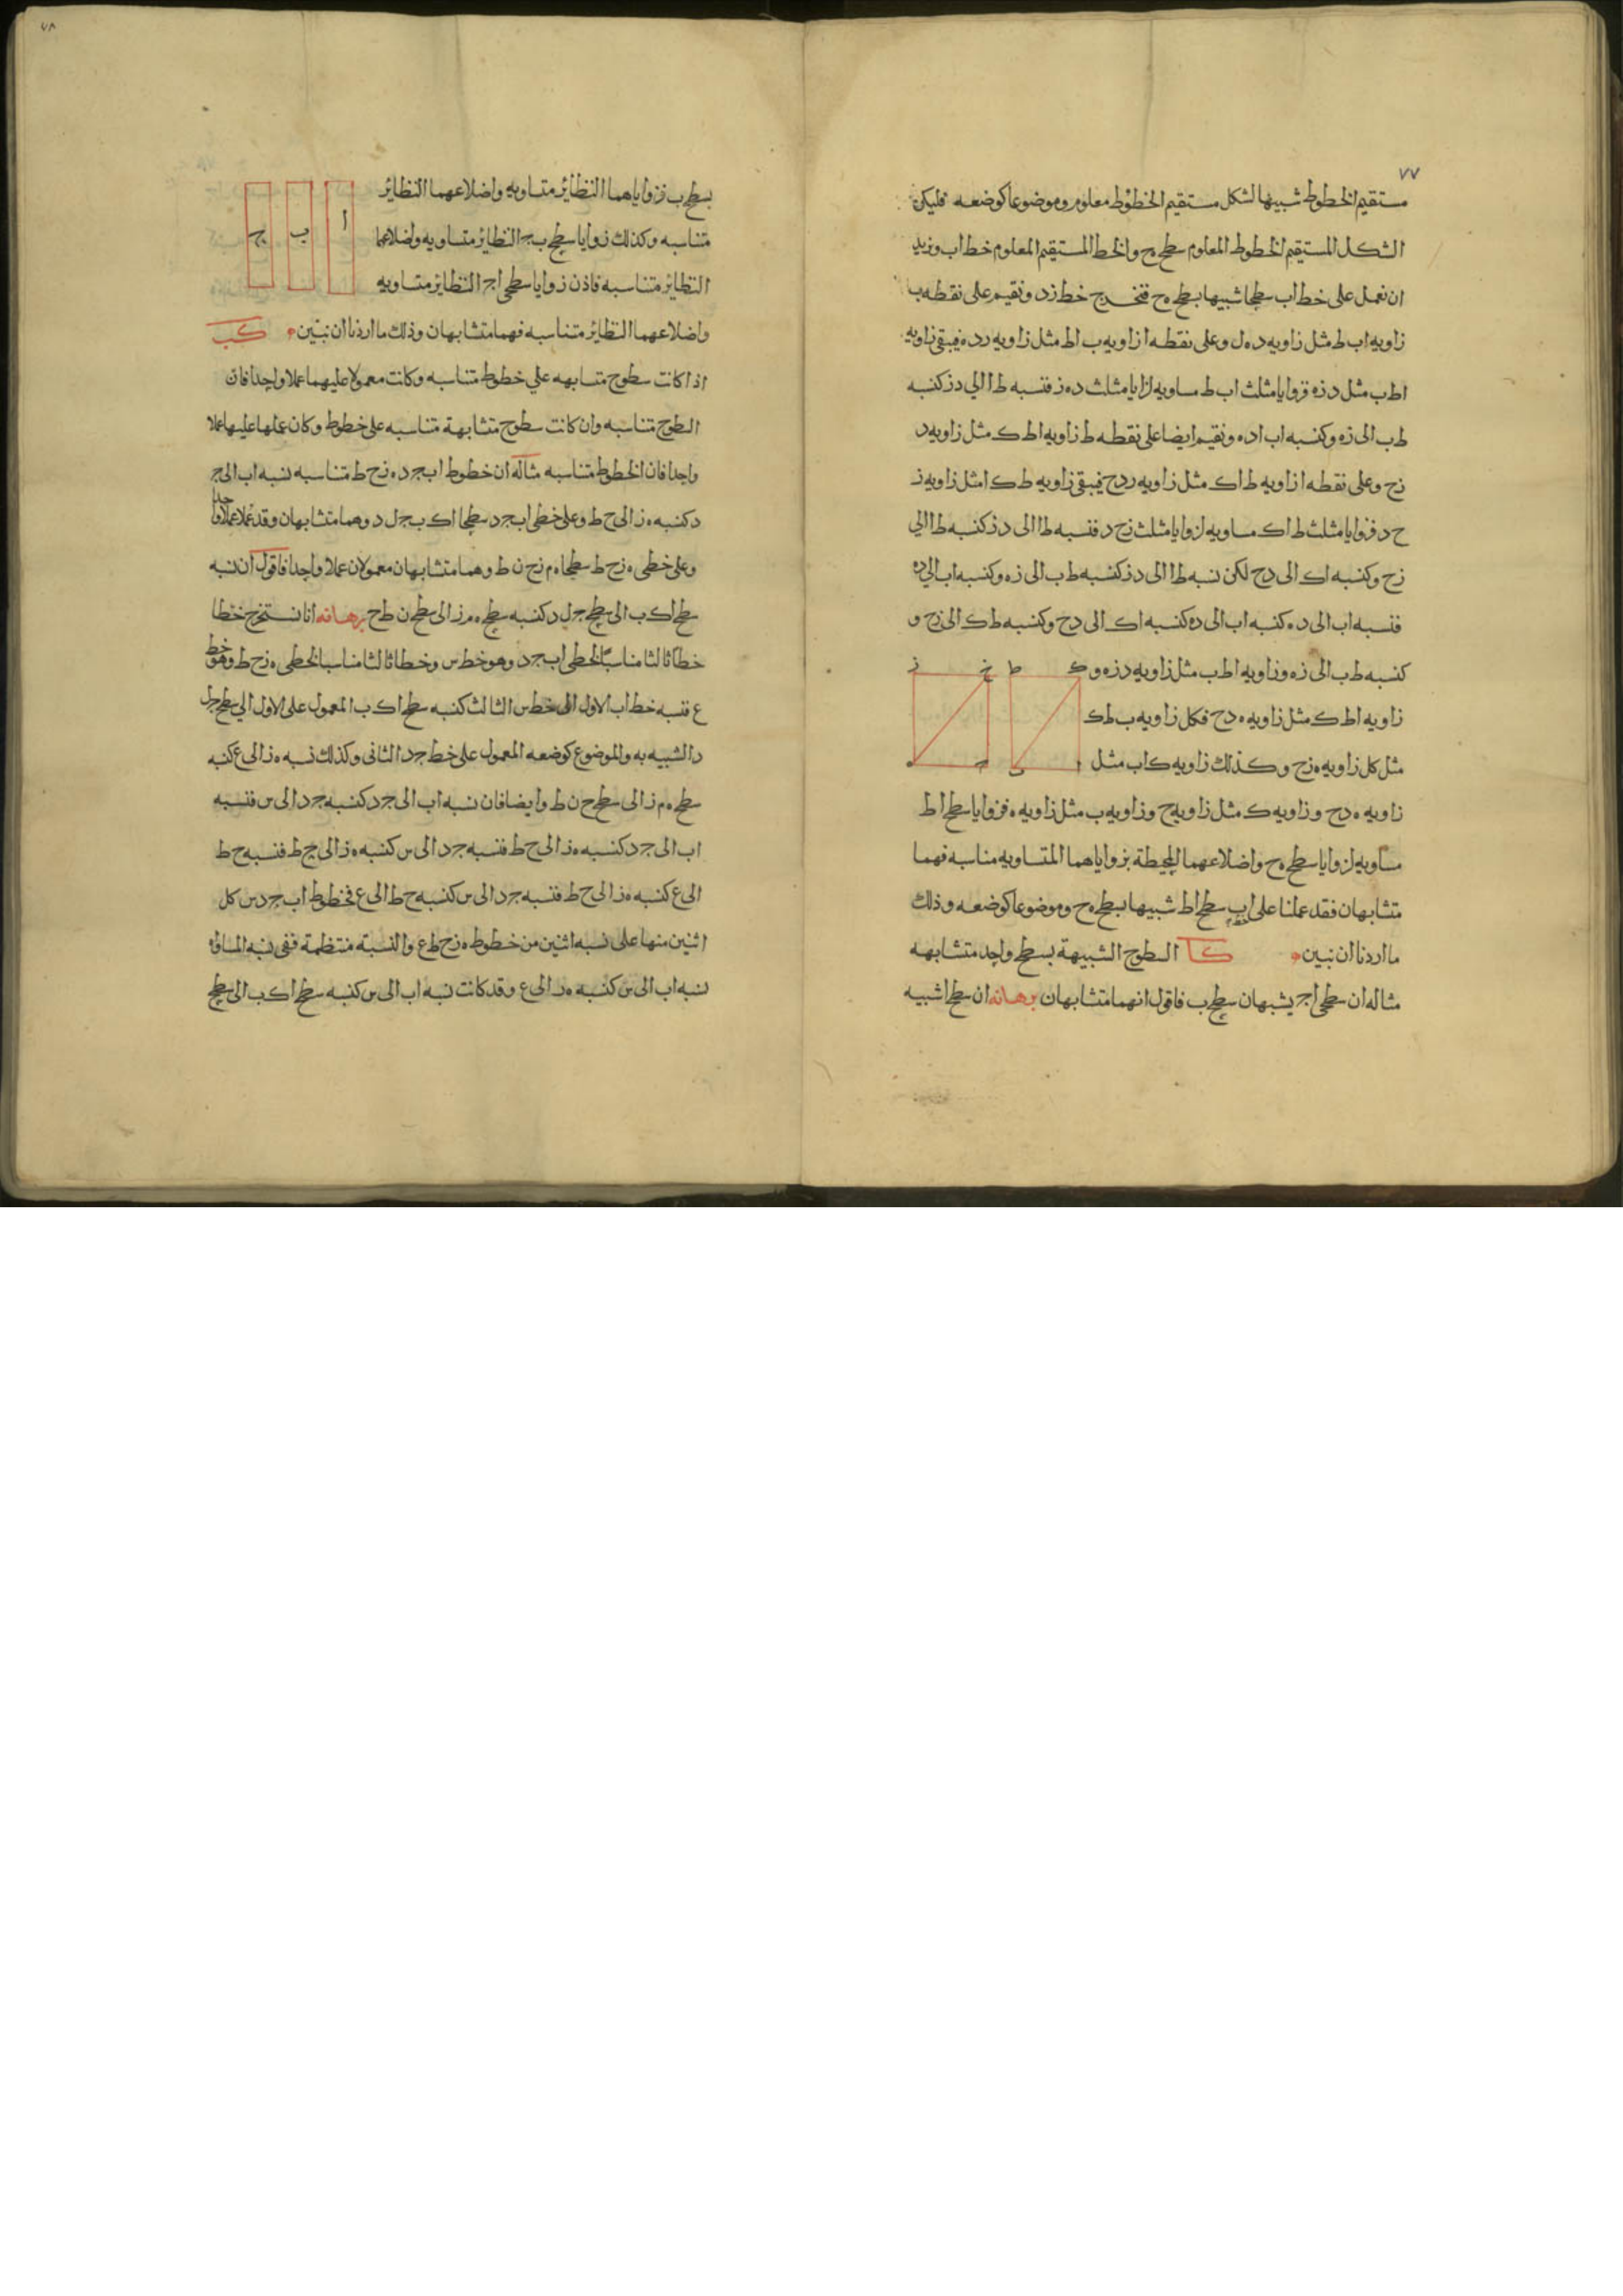 ٧٧
مستقيم الخطوط شبيها لشكل مستقيم الخطوط معلوم وموضوعا كوضعه فليكن
الشكل المستقيم الخطوط المعلوم سطح ه ح والخط المستقيم المعلوم خط اب ونريد
ان نعمل على خط اب سطحا شبيها بسطح ه ح فنخرج خط زد ونقيم على نقطه ب
زاويه اب ط مثل زاويه د ه ل وعلى نقطه ا زاويه ب اط مثل زاويه رد ه فيبقى زاويه
اط ب مثل د زه فزوايا مثلث اب ط مساويه لزايا مثلث د ه ز فنسبه ط ا الي د ز كنسبه
ط ب الى زه وكنسبه اب اد ه ونقيم ايضا على نقطه ط زاويه اط ك مثل زاويه د
زح وعلى نقطه ا زاويه ط اك مثل زاويه ردح فيبقى زاويه ط ك ا مثل زاويه ز
ح د فزوايا مثلث ط اك مساويه لزوايا مثلث زح د فنسبه ط ا الى د ز كنسبه ط ا الي
زح وكنسبه اك الى دح لكن نسبه ط ا الى د ز كنسبه ط ب الى زه وكنسبه اب الي ده
فنسبه اب الى د ه كنسبه اب الى ده كنسبه اك الى دح وكنسبه ط ك الى زح و
كنسبه ط ب الى زه وزاويه اط ب مثل زاويه د زه و
زاويه اط ك مثل زاويه ه دح فكل زاويه ب ط ك
مثل كل زاويه ه زح وكذلك زاويه ك اب مثل
زاويه ه دح وزاويه ك مثل زاويه ح وزاويه ب مثل زاويه ه فزوايا سطح اط
مساويه لزوايا سطح ه ح واضلاعهما المحيطة بزواياهما المتساويه مناسبه فهما
متشابهان فقد عملنا على اب سطح اط شبيها بسطح ه ح وموضوعا كوضعه وذلك
ما اردنا ان نبين كا السطوح الشبيهة بسطح واحد متشابهه
مثاله ان سطحي اج يشبهان سطح ب فاقول انهما متشابهان برهانه ان سطح ا شبيه
ك ط ح ز
ا ب د ه
٧٨
بسطح ب فزواياهما النظاير متساويه واضلاعهما النظاير
متناسبه وكذلك زوايا سطح ب ج النظاير متساويه واضلاعهما
النظاير متناسبه فاذن زوايا سطحي اج النظاير متساويه
واضلاعهما النظاير متناسبه فهما متشابهان وذلك ما اردنا ان نبين كب
ا ب ج
اذا كانت سطوح متشابهه علي خطوط متناسبه وكانت معمولا عليهما عملا واحدا فان
السطوح متناسبه وان كانت سطوح متشابهة متناسبه على خطوط وكان عملها عليها عملا
واحدا فان الخطوط متناسبه مثاله ان خطوط اب ج د ه ز ح ط متناسبه نسبه اب الى ج
د كنسبه ه ز الى ح ط وعلى خطي اب ج د سطحا اك ب ج ل د وهما متشابهان وقد عملا عملا واحدا
وعلى خطي ه ز ح ط سطحا ه م ز ح ن ط وهما متشابهان معمولان عملا واحدا فاقول ان نسبه
سطح اك ب الى سطح ج ل د كنسبه سطح ه م ز الى سطح ن ط ح برهانه انا نستخرج خطا
خطا ثالثا مناسبا لخطي اب ج د وهو خط س وخطا ثالثا مناسبا لخطي ه ز ح ط وهو خط
ع فنسبه خط اب الاول الى خط س الثالث كنسبه سطح اك ب المعمول على الاول الي سطح ج ل
د الشبيه به والموضوع كوضعه المعمول على خط ج د الثاني وكذلك نسبه ه ز الى ع كنسبه
سطح ه م ز الى سطح ح ن ط وايضا فان نسبه اب الى ج د كنسبه ج د الى س فنسبه
اب الى ج د كنسبه ه ز الى ح ط فنسبه ج د الى س كنسبه ه ز الى ح ط فنسبه ح ط
الى ع كنسبه ه ز الى ح ط فنسبه ج د الى س كنسبه ح ط الى ع فخطوط اب ج د س كل
اثنين منها على نسبه اثنين من خطوط ه ز ح ط ع والنسبة منتظمة ففي نسبه المساواه
نسبه اب الى س كنسبه ه ز الى ع وقد كانت نسبه اب الى س كنسبه سطح اك ب الى سطح